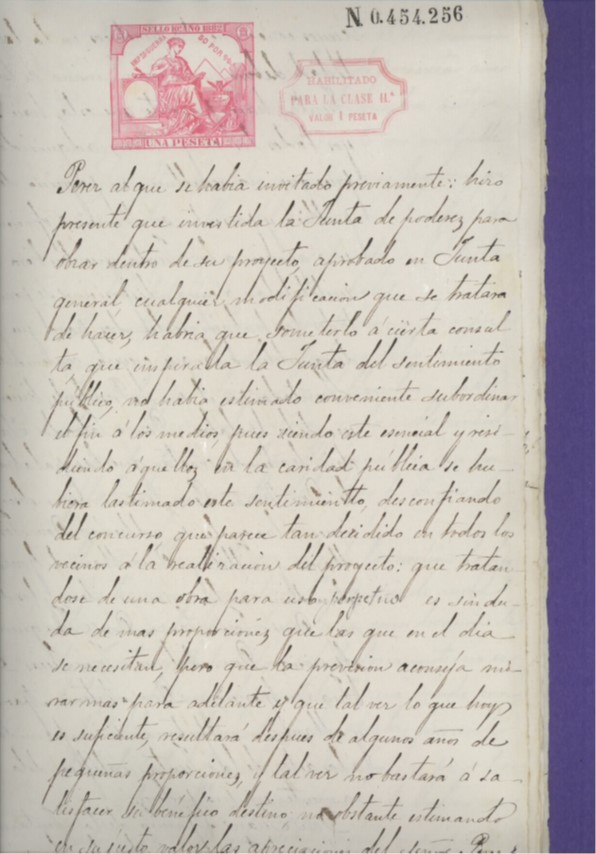 N. 0.454.256
SELLO 11º AÑO 1882
UNA PESETA
HABILITADO
PARA LA CLASE 11.ª
VALOR 1 PESETA
Perez al que se habia invitado previamente: hizo
presente que investida la Junta de poderez para
obrar dentro de su proyecto, aprobado en Junta
general cualquier modificacion que se tratara
de hacer, habria que someterlo á cierta consul
ta que inspirada la Junta del sentimiento
público, no habia estimado conveniente subordinar
el fin á los medios, pues siendo este esencial y resi-
diendo áquellos en la caridad pública se hu-
biera lastimado este sentimiento, desconfiando
del concurso que parece tan decidido en todos los
vecinos á la realizacion del proyecto: que tratan
dose de una obra para uso perpetuo es sin du-
da de mas proporcionez que las que en el dia
se necesitan, pero que la prevision aconseja mi-
rar mas para adelante y que tal vez lo que hoy
es suficiente, resultará despues de algunos años de
pequeñas proporcionez, y tal vez no bastará á sa-
tisfacer su benéfico destino, no obstante estimando
en su justo valor las apreciaciones del señor